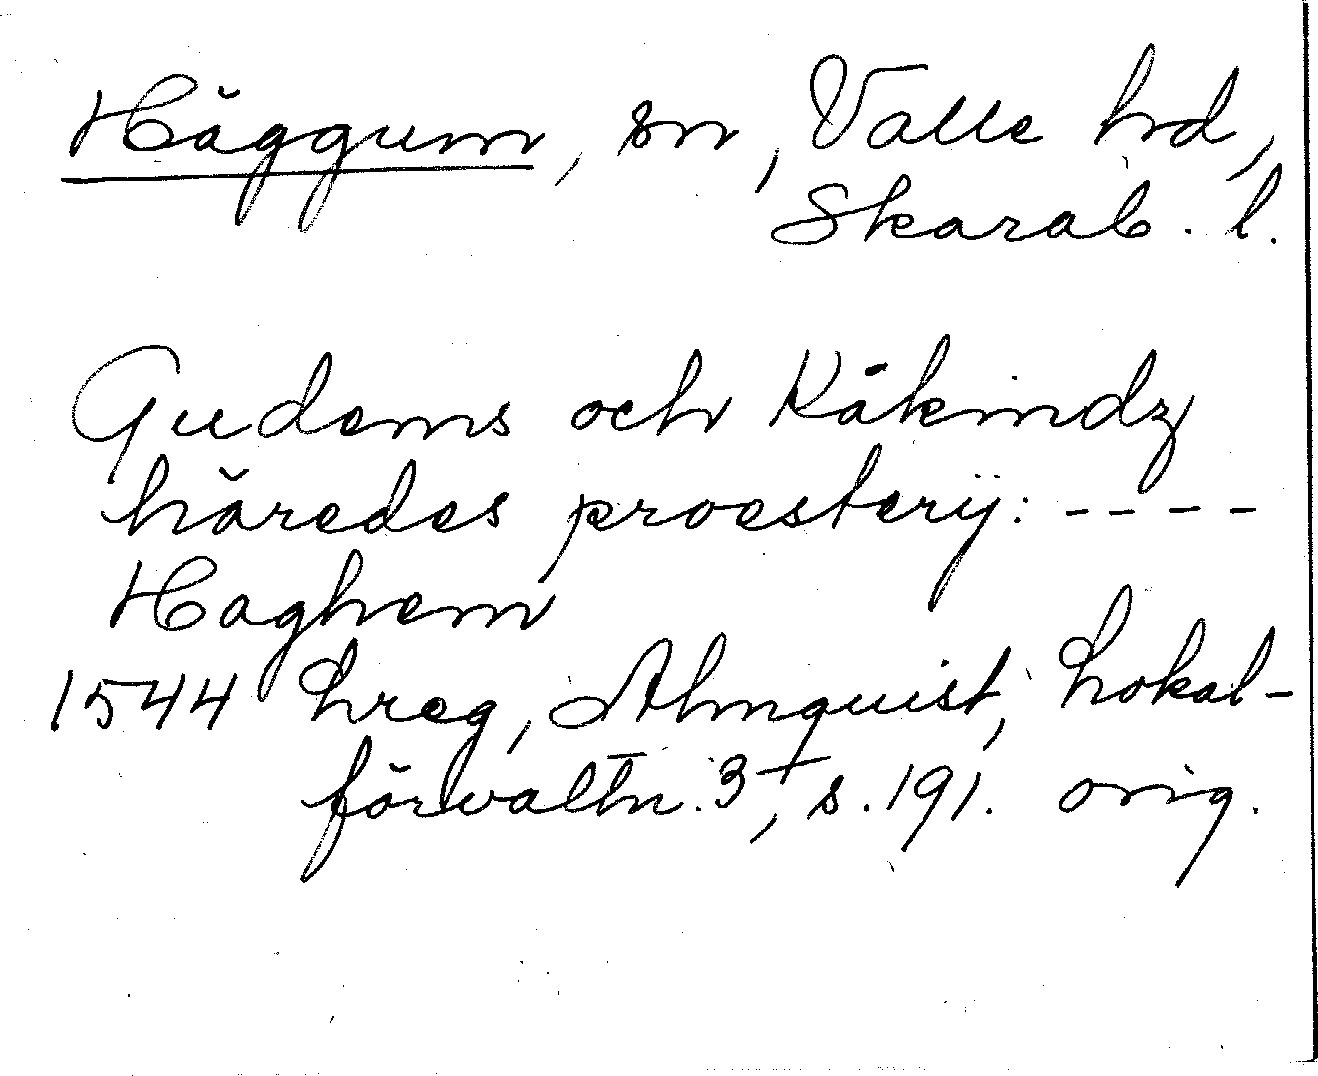 Häggum, sn, Valle hd,
Skarab. l.
Gudems och Kåkindz
häredes proestery: ----
Haghem
1544 Lreg, Almquist, Lokal-
förvaltn. 3, s. 191. orig.